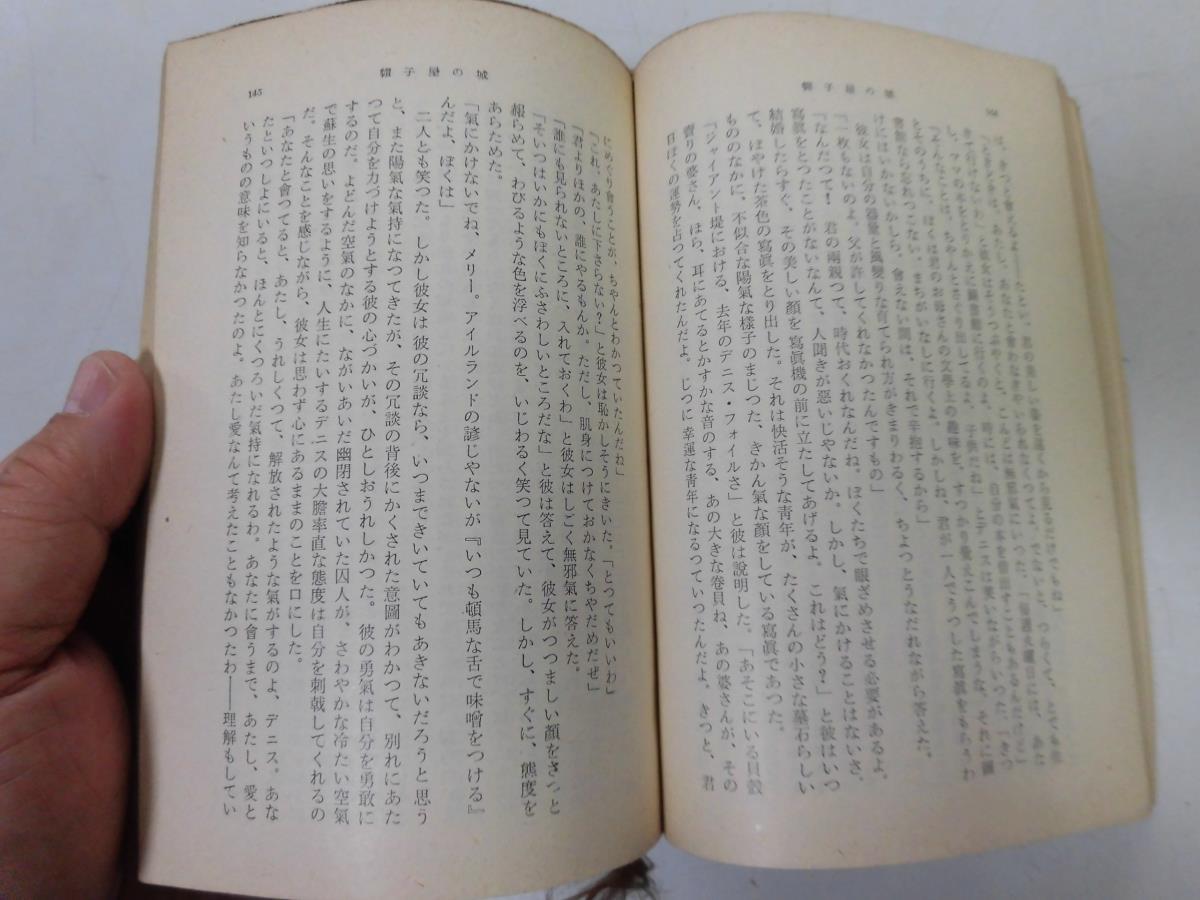 帽子屋の城
しのうちに、ぼくは君のお母さんの文學上の趣味を、すつかり覺えこんでしまうな。それに圖
書館なら忘れつこない。まちがいなしに行くよ。しかしね、君が一人でうつした寫眞をもらうわ
けにはいかないかしら。會えない間は、それで辛抱するから」
彼女は自分の器量と風變りな育てられ方がきまりわるく、ちよつとうなだれながら答えた。
「一枚もないのよ。父が許してくれなかつたんですもの」
「なんだつて！　君の兩親つて、時代おくれなんだね。ぼくたちで眼ざめさせる必要があるよ。
寫眞をとつたことがないなんて、人聞きが惡いじやないか。しかし、氣にかけることはないさ、
結婚したらすぐ、その美しい顔を寫眞機の前に立たしてあげるよ。これはどう？」と彼はいつ
て、ほやけた茶色の寫眞をとり出した。それは快活そうな青年が、たくさんの小さな墓石らしい
もののなかに、不似合な陽氣な樣子のまじつた、きかん氣な顔をしている寫眞であつた。
「ジャイアント堤における、去年のデニス・フォイルさ」と彼は説明した。「あそこにいる貝殼
賣りの婆さん、ほら、耳にあてるとかすかな音のする、あの大きな卷貝ね、あの婆さんが、その
日ぼくの運勢を占つてくれたんだよ。じつに幸運な青年になるつていつたんだよ。きつと、君
帽子屋の城
145
にめぐり會うことが、ちやんとわかつていたんだね」
「これ、あたしに下さらない？」と彼女は恥かしそうにきいた。「とつてもいいわ」
「君よりほかの、誰にやるもんか。ただし、肌身につけておかなくちやだめだぜ」
「誰にも見られないところに、入れておくわ」と彼女はしごく無邪氣に答えた。
「そいつはいかにもぼくにふさわしいところだな」と彼は答えて、彼女がつつましい顔をさつと
赧らめて、わびるような色を浮べるのを、いじわるく笑つて見ていた。しかし、すぐに、態度を
あらためた。
「氣にかけないでね、メリー。アイルランドの諺じやないが『いつも頓馬な舌で味噌をつける』
んだよ、ぼくは」
二人とも笑つた。しかし彼女は彼の冗談なら、いつまできいていてもあきないだろうと思う
と、また陽氣な氣持になつてきたが、その冗談の背後にかくされた意圖がわかつて、別れにあた
つて自分を力づけようとする彼の心づかいが、ひとしおうれしかつた。彼の勇氣は自分を勇敢に
するのだ。よどんだ空氣のなかに、ながいあいだ幽閉されていた囚人が、さわやかな冷たい空氣
で蘇生の思いをするように、人生にたいするデニスの大膽率直な態度は自分を刺戟してくれるの
だ。そんなことを感じながら、彼女は思わず心にあるままのことを口にした。
「あなたと會つてると、あたし、うれしくつて、解放されたような氣がするのよ、デニス。あな
たといつしよにいると、ほんとにくつろいだ氣持になれるわ。あなたに會うまで、あたし、愛と
いうものの意味を知らなかつたのよ。あたし愛なんて考えたこともなかつたわ――理解もしてい